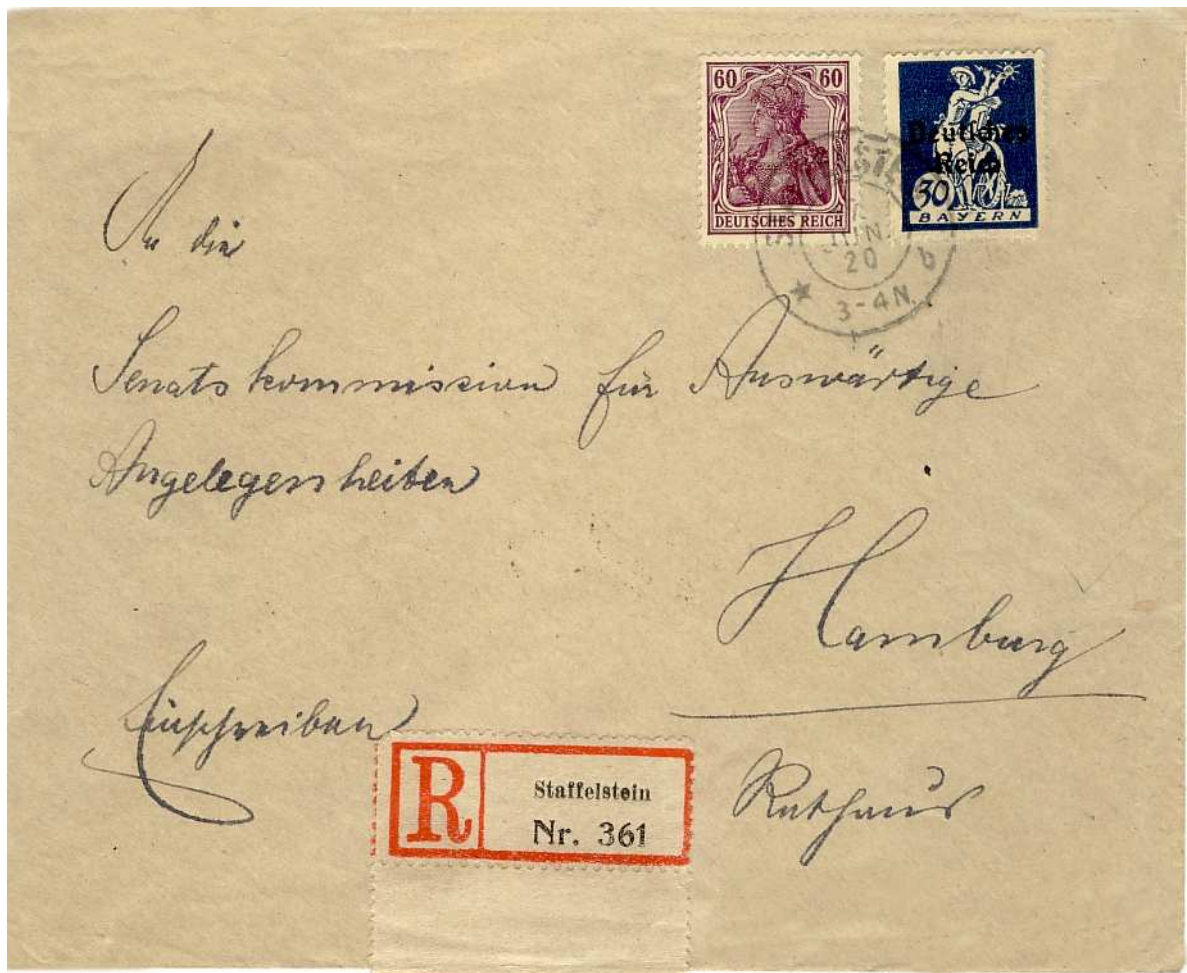 60 60
DEUTSCHES REICH
Deutsches
Reich
30
BAYERN
JUN.
20
b
3-4N.
An die
Senatskommission für Auswärtige
Angelegenheiten
Hamburg
Einschreiben
Rathaus
R
Staffelstein
Nr. 361